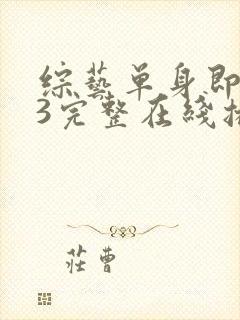 综藝单身即
3完整在綫
莊曹